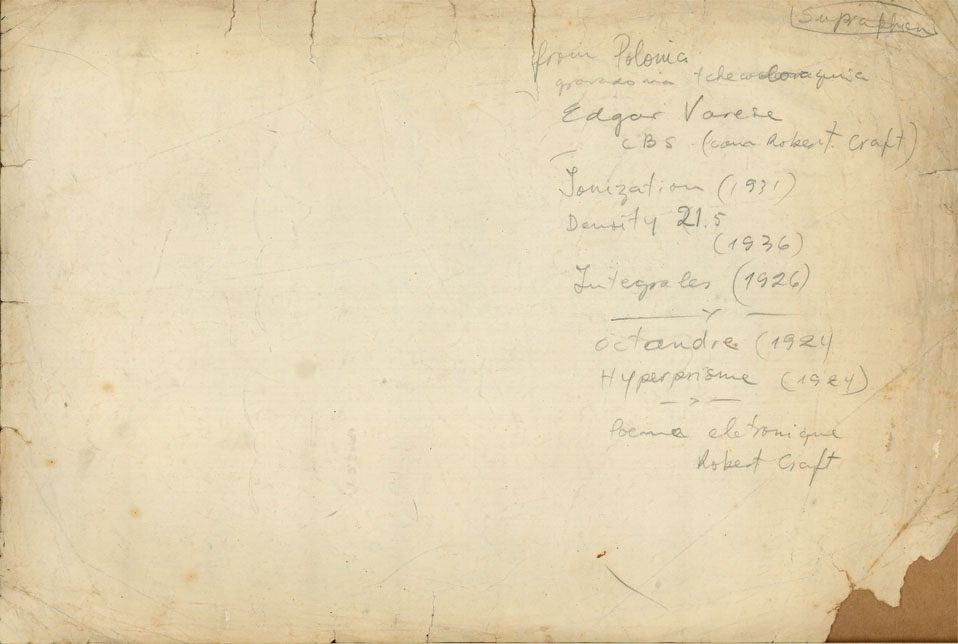 Supraphon
from Polonia
gravadora tchecoslovaquia
Edgar Varese
CBS (com Robert Craft)
Ionization (1931)
Density 21.5
(1936)
Integrales (1926)
octandre (1924
Hyperprisme (1924)
Poema eletronique
Robert Craft